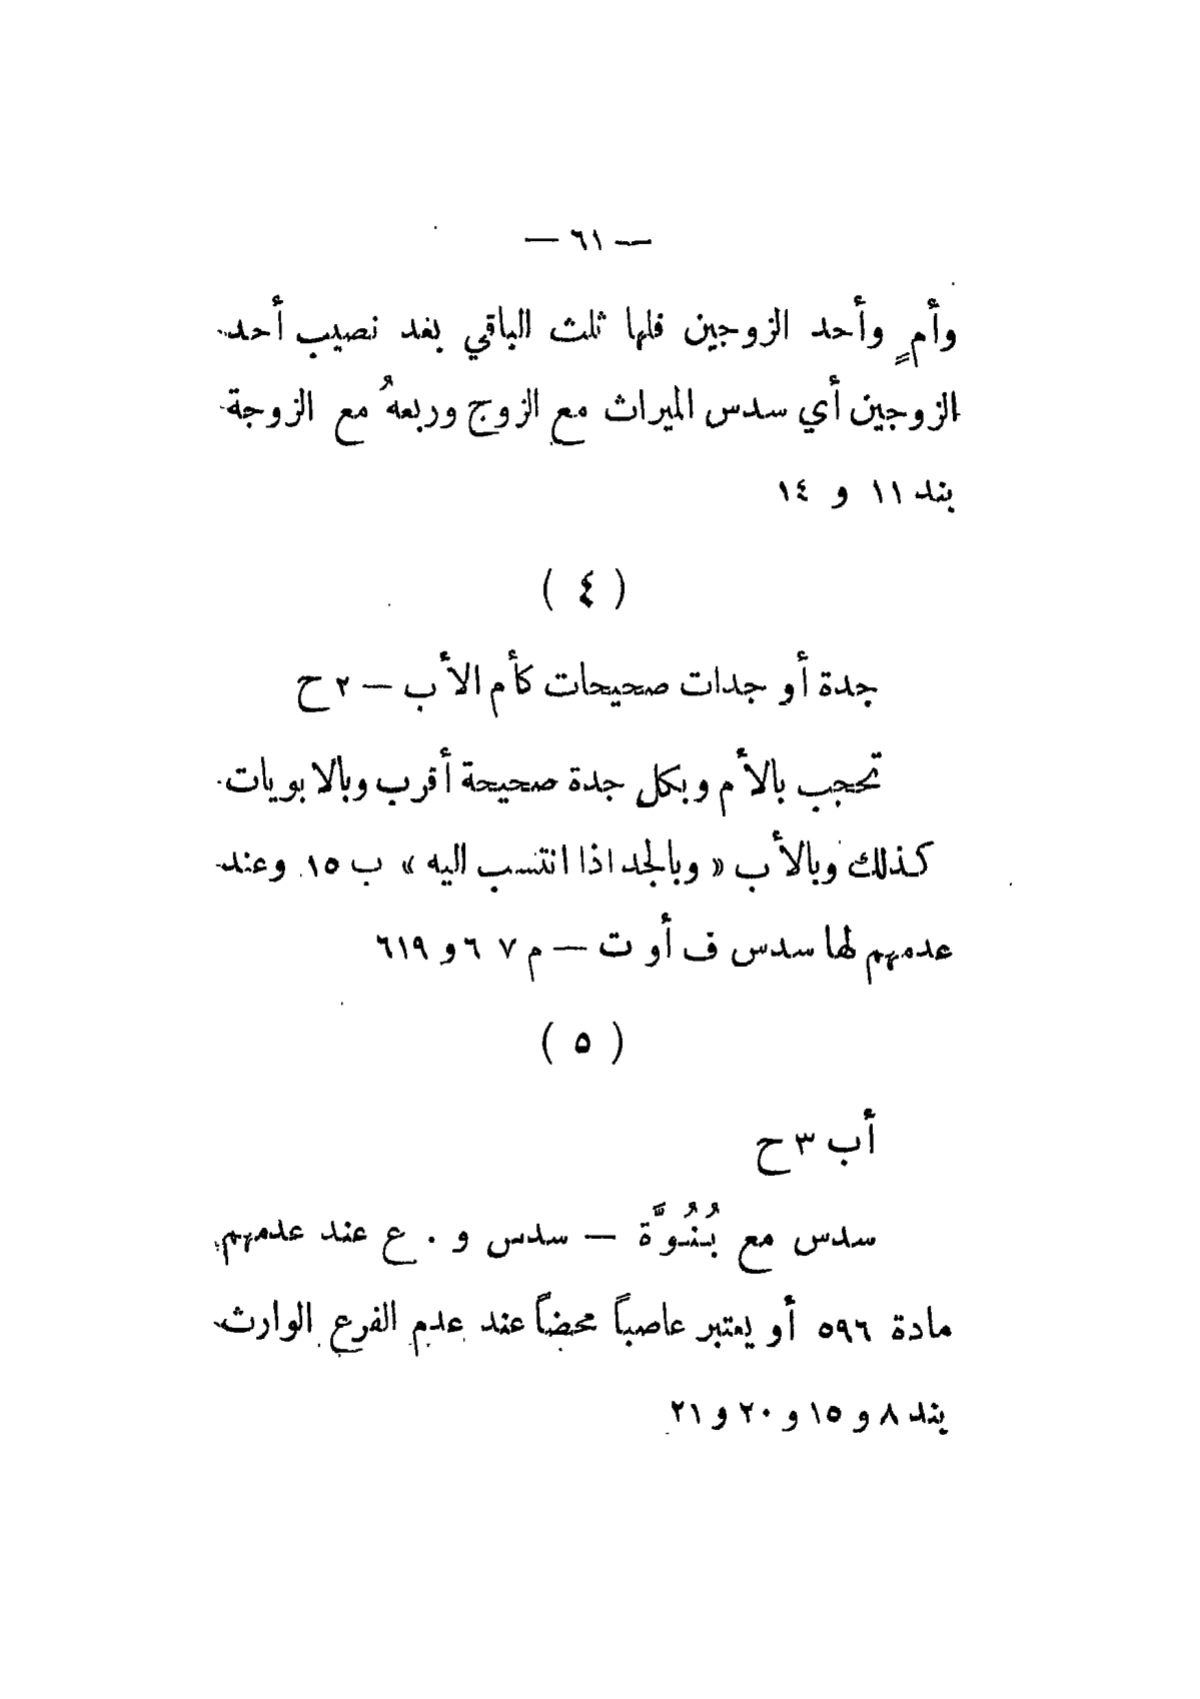 — ٦١ —
وأمٍ وأحد الزوجين فلها ثلث الباقي بعد نصيب أحد
الزوجين أي سدس الميراث مع الزوج وربعهُ مع الزوجة
بند ١١ و ١٤
( ٤ )
جدة أو جدات صحيحات كأم الأب — ٢ ح
تحجب بالأم وبكل جدة صحيحة أقرب وبالابويات
كذلك وبالأب « وبالجد اذا انتسب اليه » ب ١٥ وعند
عدمهم لها سدس ف أو ت — م ٧ ٦ و ٦١٩
( ٥ )
أب ٣ ح
سدس مع بُنُوَّة — سدس و . ع عند عدمهم
مادة ٥٩٦ أو يعتبر عاصباً محضاً عند عدم الفرع الوارث
بند ٨ و ١٥ و ٢٠ و ٢١